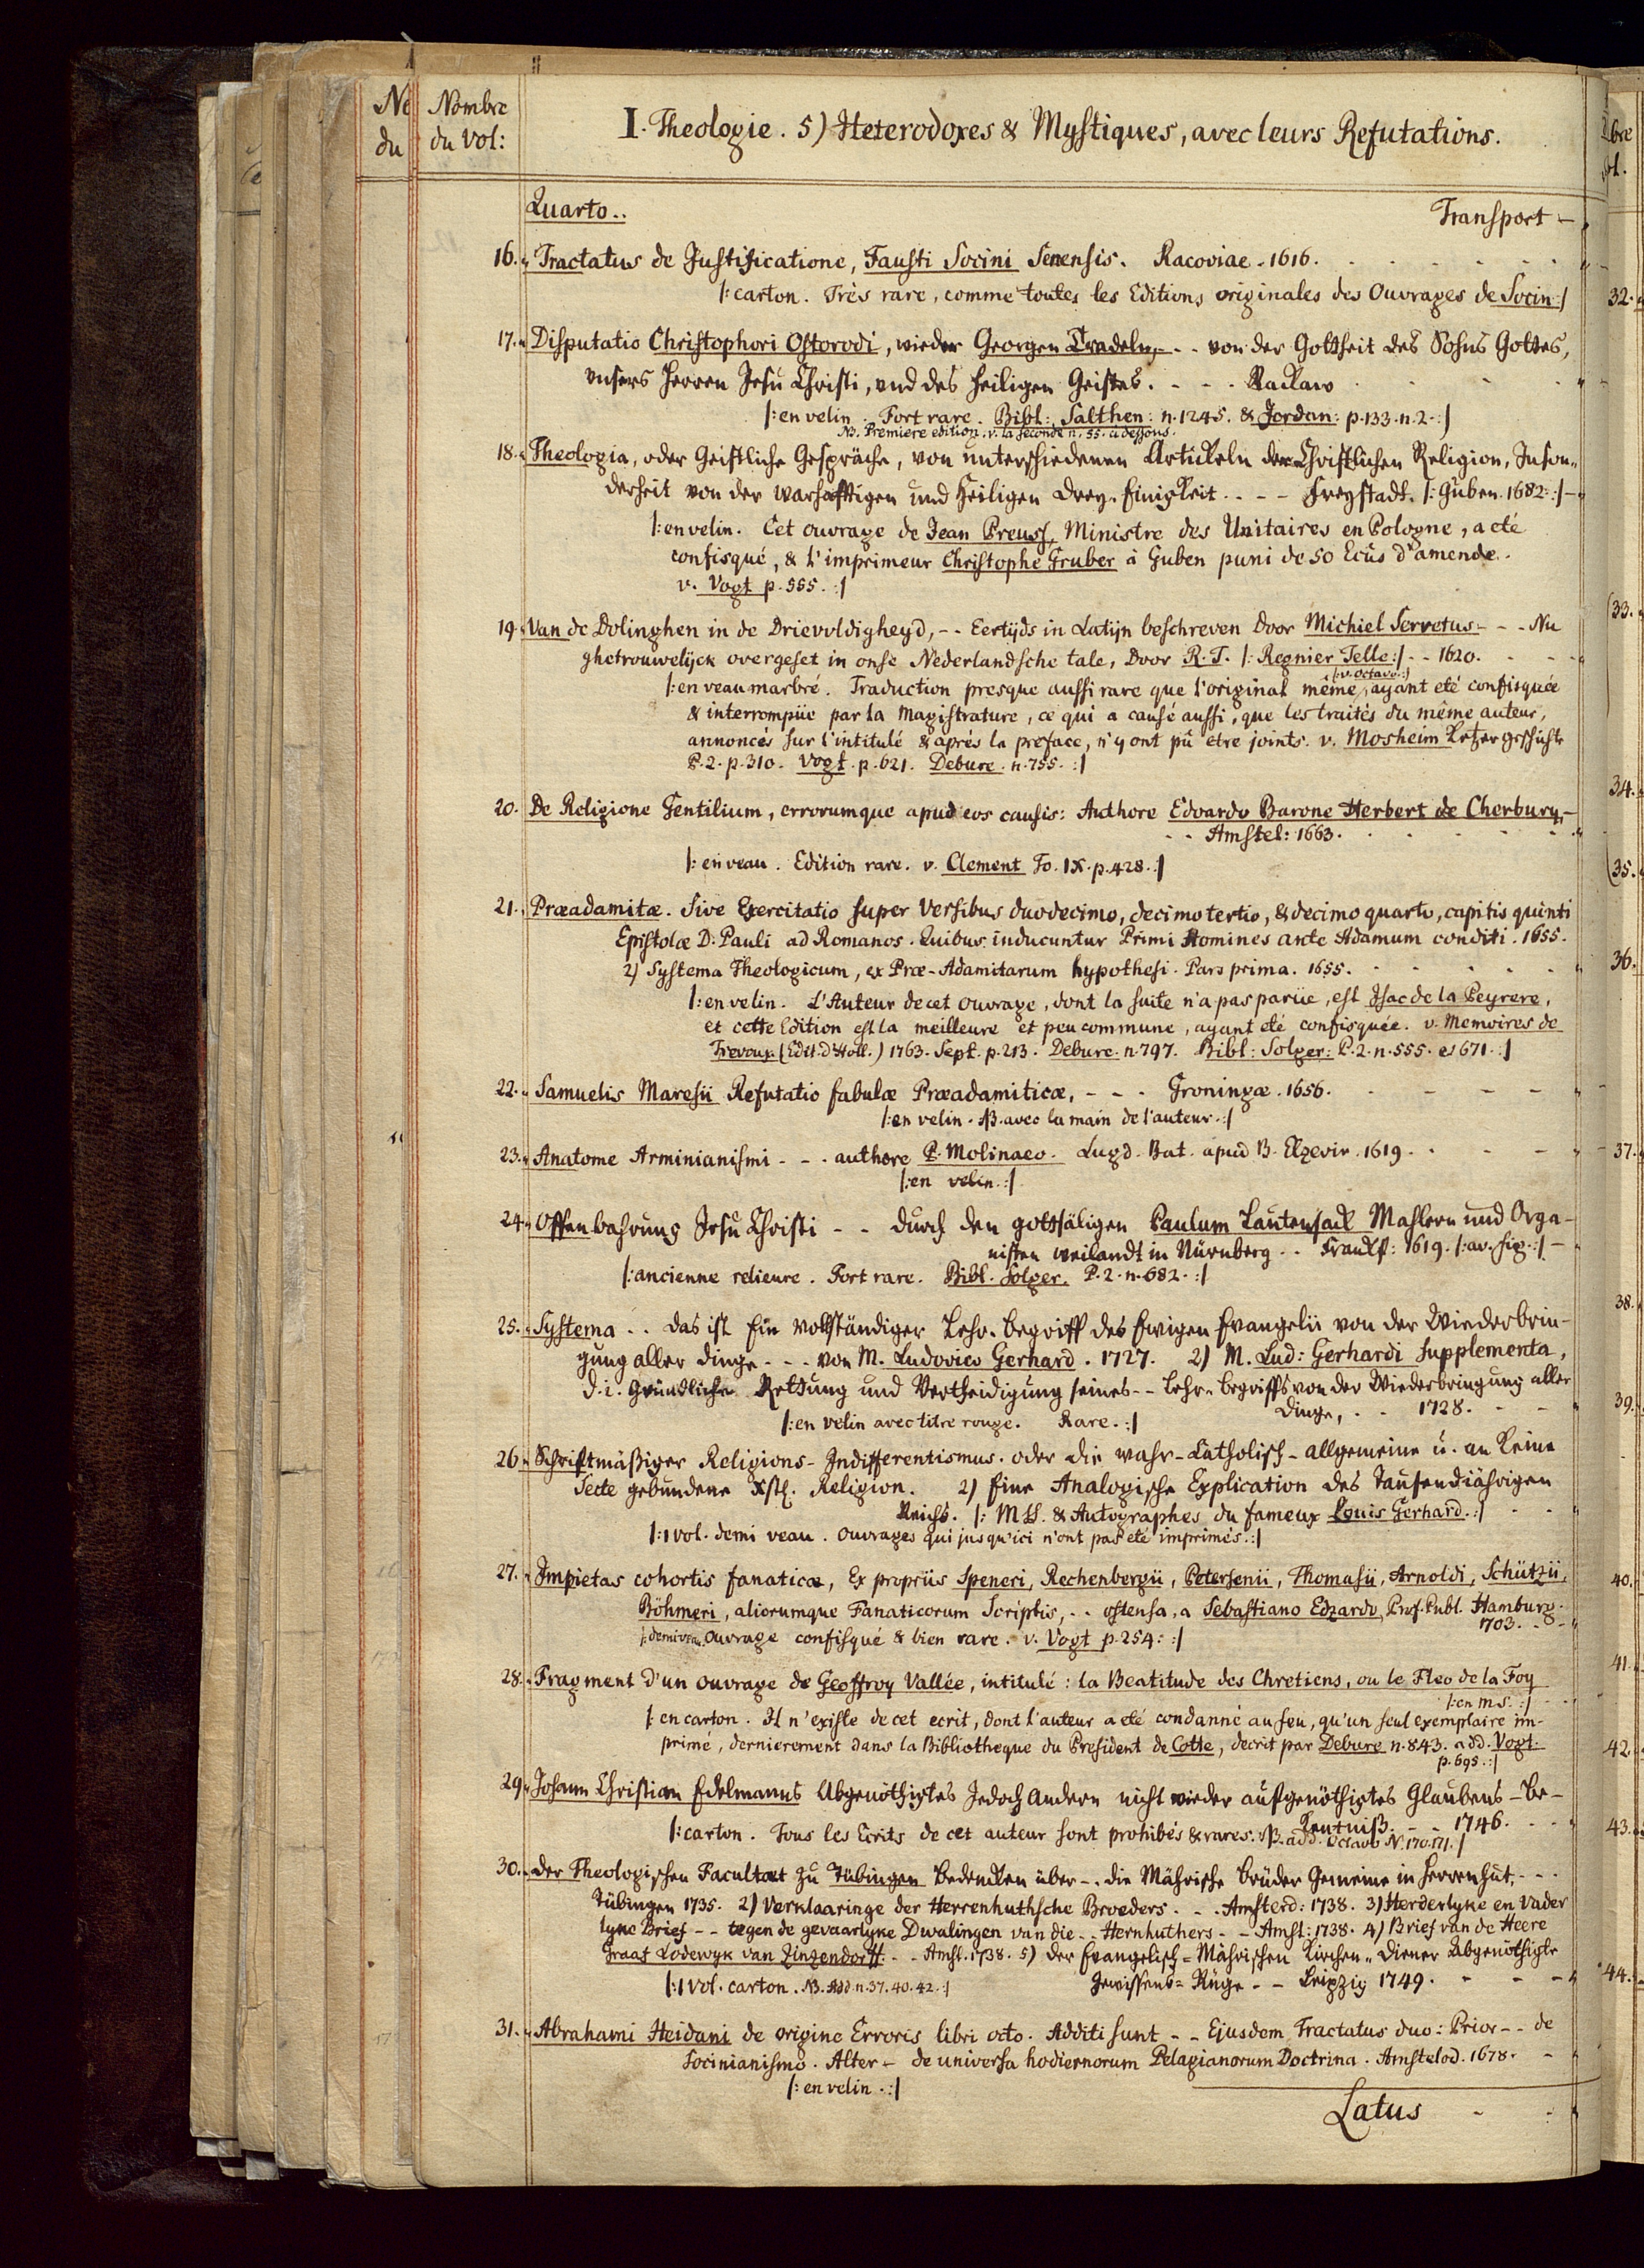 Nombre
du Vol:
No
du
I. Theologie. 5) Heterodoxes & Mystiques, avec leurs Refutations.
Quarto..
Transport –
16. Tractatus de Justificatione, Fausti Socini Senensis. Racoviae. 1616.
/: carton. Très rare, comme toutes les Editions originales des Ouvrages de Socin :/
17. Disputatio Christophori Ostorodi, wieder Georgen Tradeln, - - von der Gottheit des Sohns Gottes,
unsers Herren Jesu Christi, und des heiligen Geistes. - - - Rackaw
/: en velin. Fort rare. Bibl: Salthen: n. 1245. & Jordan: p. 133. n. 2. :/
NB. Premiere edition. v. la seconde n. 55. ci dessous.
18. Theologia, oder Geistliche Gespräche, von unterschiedenen Artickeln der Christlichen Religion, Inson„
derheit von der warhafftigen und heiligen Drey-Einigkeit - - - Freystadt. /: Guben. 1682 :/ –
/: en velin. Cet ouvrage de Jean Preuss, Ministre des Unitaires en Pologne, a eté
confisqué, & l'imprimeur Christophe Gruber à Guben puni de 50 Ecûs d'amende.
v. Vogt p. 555. :/
19. Van de Dolinghen in de Drievuldigheyd, - - Eertijds in Latijn beschreven Door Michiel Servetus - - - Nu
ghetrouwelijck overgeset in onse Nederlandsche tale, Door R. T. /: Regnier Telle :/ - - 1620.
/: v. Octavo :/
/: en veau marbré. Traduction presque aussi rare que l'original même, ayant eté confisquée
& interrompüe par la Magistrature, ce qui a causé aussi, que les traités du même auteur,
annoncés sur l'intitulé & aprés la preface, n'y ont pû etre joints. v. Mosheim Ketzergeschichte
P. 2. p. 310. Vogt. p. 621. Debure. n. 755. :/
20. De Religione Gentilium, errorumque apud eos causis: Authore Edoardo Barone Herbert de Cherbury, –
- - Amstel: 1663.
/: en veau. Edition rare. v. Clement To. IX. p. 428. :/
21. Præadamitæ. Sive Exercitatio super Versibus duodecimo, decimotertio, & decimoquarto, capitis quinti
Epistolæ D: Pauli ad Romanos. Quibus inducuntur Primi Homines ante Adamum conditi. 1655.
2) Systema Theologicum, ex Præ-Adamitarum hypothesi. Pars prima. 1655.
/: en velin. L'Auteur de cet ouvrage, dont la suite n'a pas parüe, est Isac de la Peyrere,
et cette Edition est la meilleure et peu commune, ayant eté confisquée. v. Memoires de
Trevoux (Edit. d'Holl.) 1763. Sept. p. 213. Debure. n. 797. Bibl: Solger: P. 2. n. 555. et 671. :/
22. Samuelis Maresii Refutatio fabulæ Præadamiticæ, - - - Groningæ. 1656.
/: en velin. NB. avec la main de l'auteur. :/
23. Anatome Arminianismi - - - authore P. Molinaeo. Lugd. Bat. apud B. Elzevir. 1619.
/: en velin. :/
24. Offenbahrung Jesu Christi - - durch den gottsäligen Paulum Lautensack Mahlern und Orga-
nisten weilandt in Nürnberg - - Franckf: 1619. /: av. fig. :/ –
/: ancienne relieure. Fort rare. Bibl. Solger. P. 2. n. 682. :/
25. Systema - - das ist Ein vollständiger Lehr-begriff des Ewigen Evangelii von der Wiederbrin-
gung aller dinge - - - von M. Ludovico Gerhard. 1727. 2) M. Lud: Gerhardi Supplementa,
d. i. Gründliche Rettung und Vertheidigung seines - - Lehr-begriffs von der Wiederbringung aller
Dinge, - - 1728.
/: en velin avec titre rouge. Rare. :/
26. Schriftmäßiger Religions-Indifferentismus. oder die wahr-Catholisch-allgemeine u. an keine
Secte gebundene Xstl. Religion. 2) Eine Analogische Explication des Tausendjährigen
Reichs. /: MSS. & Autographes du fameux Louis Gerhard. :/
/: 1 vol. demi veau. Ouvrages qui jusqu'ici n'ont pas eté imprimés. :/
27. Impietas cohortis fanaticæ, Ex propriis Speneri, Rechenbergii, Petersenii, Thomasii, Arnoldi, Schützii,
Böhmeri, aliorumque Fanaticorum Scriptis, - - ostensa, a Sebastiano Edzardo, Prof. Publ. Hamburg.
1703.
/: demi veau. Ouvrage confisqué & bien rare. v. Vogt p. 254: :/
28. Fragment d'un ouvrage de Geoffroy Vallée, intitulé: la Beatitude des Chretiens, ou le Fleo de la Foy
/: en MS. :/
/: en carton. Il n'existe de cet ecrit, dont l'auteur a eté condanné au feu, qu'un seul exemplaire im-
primé, dernierement dans la Bibliotheque du President de Cotte, decrit par Debure n. 843. add. Vogt.
p. 695. :/
29. Johann Christian Edelmanns Abgenöthigtes Jedoch Andern nicht wieder aufgenöthigtes Glaubens-Be-
kentniß. - - 1746.
/: carton. Tous les Ecrits de cet auteur sont prohibés & rares. NB. add. Octavo N. 170. 171. :/
30. Der Theologischen Facultæt zu Tübingen Bedencken über - - die Mährische Brüder Gemeine in Herrenhut, - - -
Tübingen 1735. 2) Verklaaringe der Herrenhuthsche Broeders - - - Amsterd: 1738. 3) Herderlyke en Vader
lyke Brief - - tegen de gevaarlyke Dwalingen van die - - Hernhuthers - - Amst: 1738. 4) Brief van de Heere
Graaf Lodewyk van Zinzendorff - - Amst. 1738. 5) Der Evangelisch-Mährischen Kirchen-Diener Abgenöthigte
Gewissens-Rüge - - Leipzig 1749.
/: 1 vol. carton. NB. Add. n. 37. 40. 42. :/
31. Abrahami Heidani de origine Erroris libri octo. Additi sunt - - Ejusdem Tractatus duo: Prior - - de
Socinianismo. Alter - de universa hodiernorum Pelagianorum Doctrina. Amstelod. 1678.
/: en velin. :/
Latus
32.
33.
34.
35.
36.
37.
38.
39.
40.
41.
42.
43.
44.